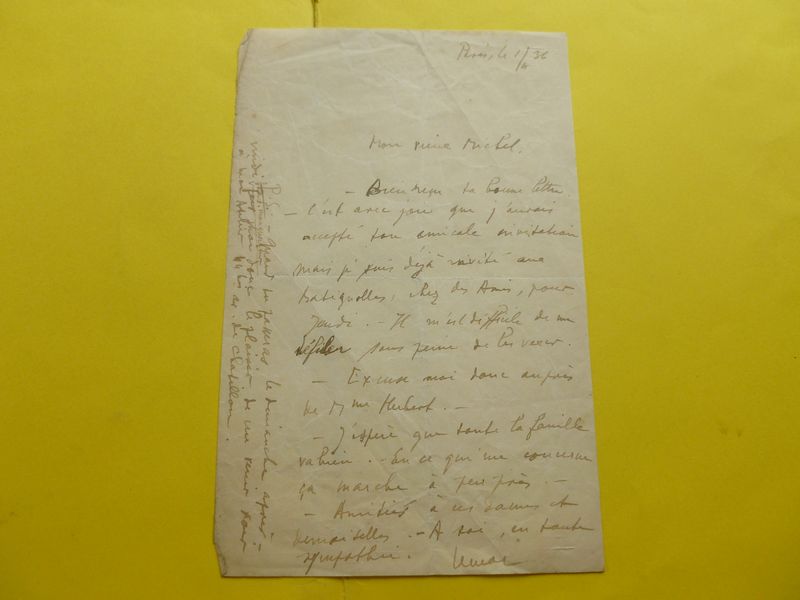 Paris, le 1/4 36
Mon vieux Michel.
— Bien reçu ta bonne lettre.
— C'est avec joie que j'aurais
accepté ton amicale invitation
mais je suis déjà invité aux
Batignolles, chez des Amis, pour
Jeudi. — Il m'est difficile de me
défiler sans peine de les vexer.
— Excuse moi donc auprès
de Mme Herbert. —
— J'espère que toute la famille
va bien. — En ce qui me concerne
ça marche à peu près. —
— Amitiés à ces dames et
demoiselles. — A toi, en toute
sympathie.
P.S. — Quand tu passeras, le dimanche après-
midi, fais moi donc le plaisir de me venir voir
à mon atelier 46 av. de Chatillon.